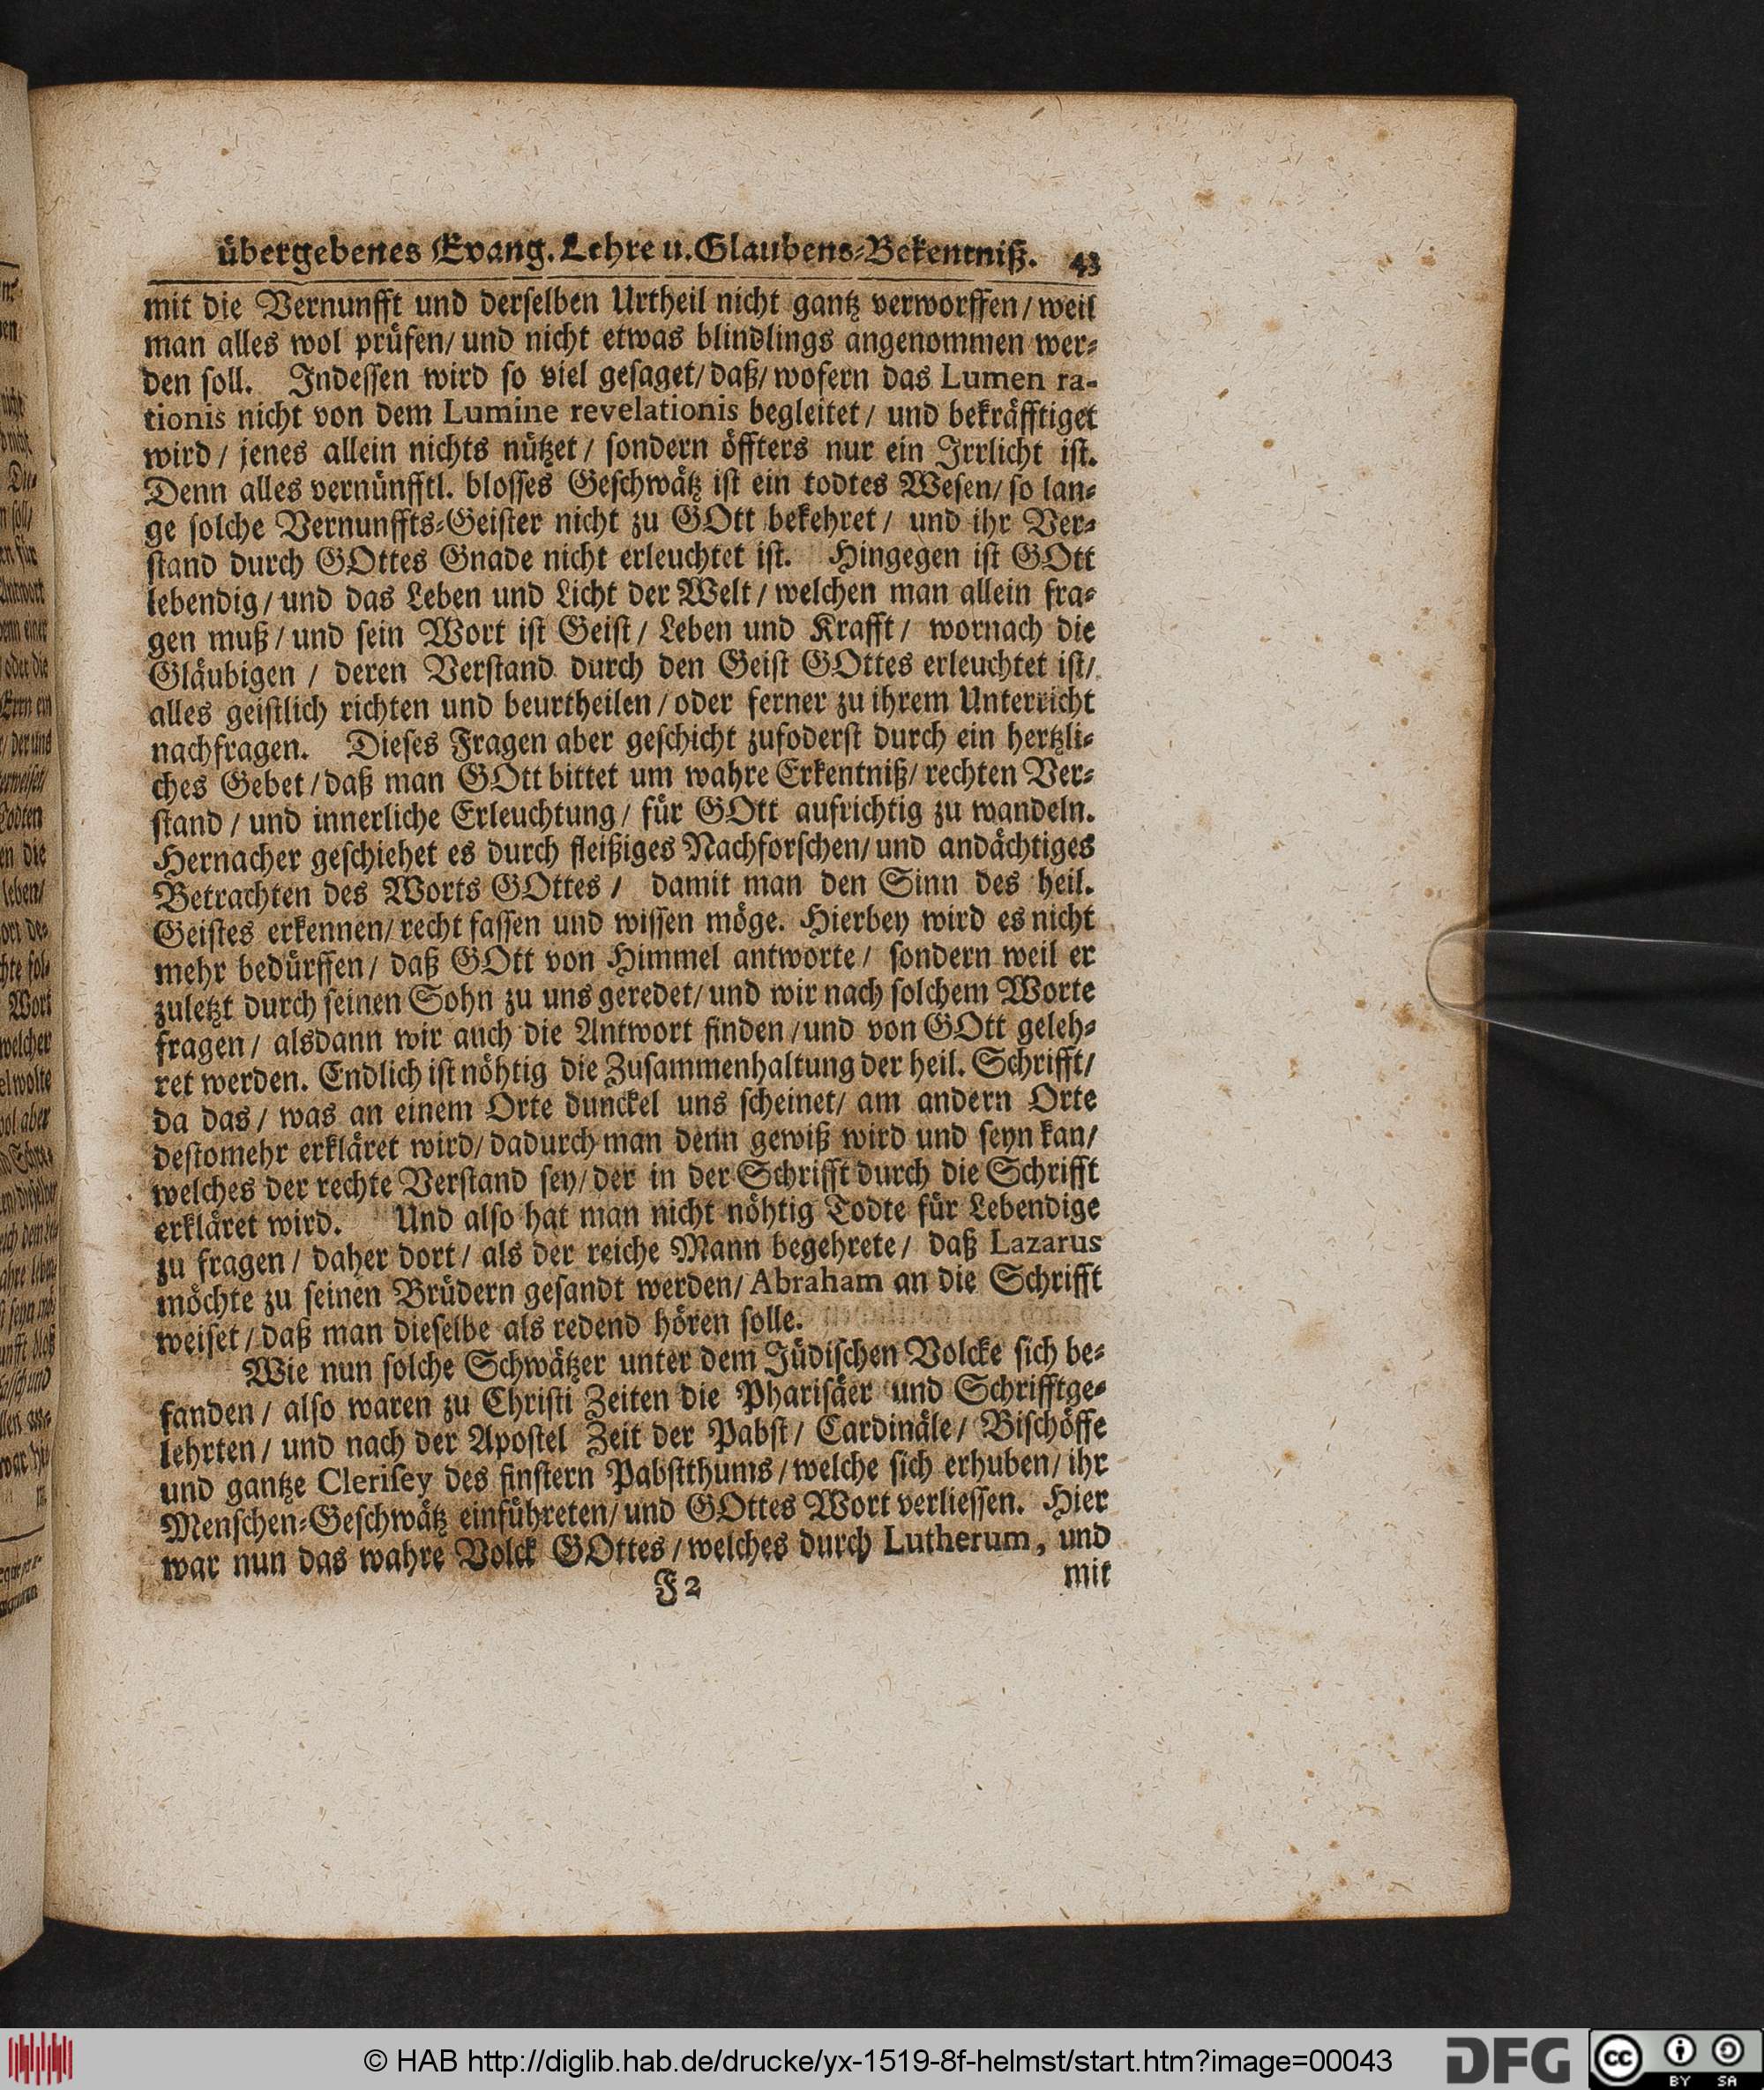 übergebenes Evang. Lehre u. Glaubens-Bekentniß. 43
mit die Vernunfft und derselben Urtheil nicht gantz verworffen/ weil
man alles wol prüfen/ und nicht etwas blindlings angenommen wer-
den soll. Indessen wird so viel gesaget/ daß/ wofern das Lumen ra-
tionis nicht von dem Lumine revelationis begleitet/ und bekräfftiget
wird/ jenes allein nichts nützet/ sondern öffters nur ein Irrlicht ist.
Denn alles vernünfftl. blosses Geschwätz ist ein todtes Wesen/ so lan-
ge solche Vernunffts-Geister nicht zu GOtt bekehret/ und ihr Ver-
stand durch GOttes Gnade nicht erleuchtet ist. Hingegen ist GOtt
lebendig/ und das Leben und Licht der Welt/ welchen man allein fra-
gen muß/ und sein Wort ist Geist/ Leben und Krafft/ wornach die
Gläubigen/ deren Verstand durch den Geist GOttes erleuchtet ist/
alles geistlich richten und beurtheilen/ oder ferner zu ihrem Unterricht
nachfragen. Dieses Fragen aber geschicht zufoderst durch ein hertzli-
ches Gebet/ daß man GOtt bittet um wahre Erkentniß/ rechten Ver-
stand/ und innerliche Erleuchtung/ für GOtt aufrichtig zu wandeln.
Hernacher geschiehet es durch fleißiges Nachforschen/ und andächtiges
Betrachten des Worts GOttes/ damit man den Sinn des heil.
Geistes erkennen/ recht fassen und wissen möge. Hierbey wird es nicht
mehr bedürffen/ daß GOtt von Himmel antworte/ sondern weil er
zuletzt durch seinen Sohn zu uns geredet/ und wir nach solchem Worte
fragen/ alsdann wir auch die Antwort finden/ und von GOtt geleh-
ret werden. Endlich ist nöhtig die Zusammenhaltung der heil. Schrifft/
da das/ was an einem Orte dunckel uns scheinet/ am andern Orte
destomehr erkläret wird/ dadurch man denn gewiß wird und seyn kan/
welches der rechte Verstand sey/ der in der Schrifft durch die Schrifft
erkläret wird. Und also hat man nicht nöhtig Todte für Lebendige
zu fragen/ daher dort/ als der reiche Mann begehrete/ daß Lazarus
möchte zu seinen Brüdern gesandt werden/ Abraham an die Schrifft
weiset/ daß man dieselbe als redend hören solle.
Wie nun solche Schwätzer unter dem Jüdischen Volcke sich be-
fanden/ also waren zu Christi Zeiten die Pharisäer und Schrifftge-
lehrten/ und nach der Apostel Zeit der Pabst/ Cardinäle/ Bischöffe
und gantze Clerisey des finstern Pabstthums/ welche sich erhuben/ ihr
Menschen-Geschwätz einführeten/ und GOttes Wort verliessen. Hier
war nun das wahre Volck GOttes/ welches durch Lutherum, und
F 2 mit
© HAB http://diglib.hab.de/drucke/yx-1519-8f-helmst/start.htm?image=00043
DFG
cc BY SA